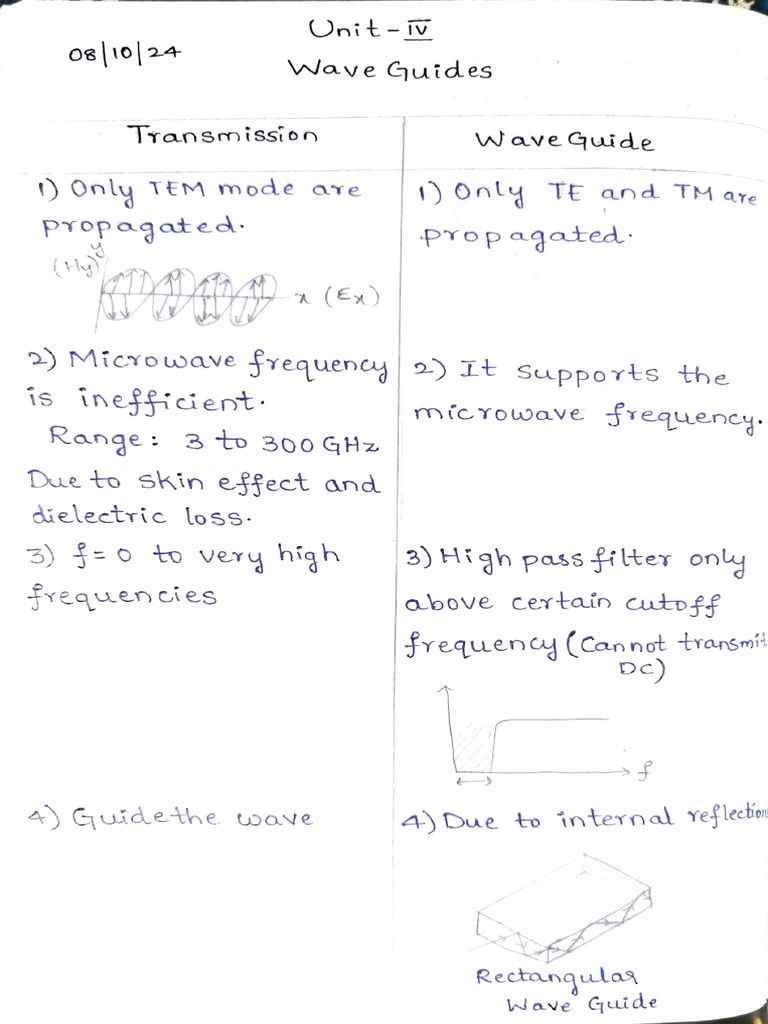 Unit-IV
08/10/24
Wave Guides
Transmission
1) Only TEM mode are
propagated.
(Hy) y
x (Ex)
2) Microwave frequency
is inefficient.
Range: 3 to 300 GHz
Due to skin effect and
dielectric loss.
3) f=0 to very high
frequencies
4) Guide the wave
Wave Guide
1) Only TE and TM are
propagated.
2) It supports the
microwave frequency.
3) High pass filter only
above certain cutoff
frequency (Cannot transmit
DC)
f
4) Due to internal reflection
Rectangular
Wave Guide